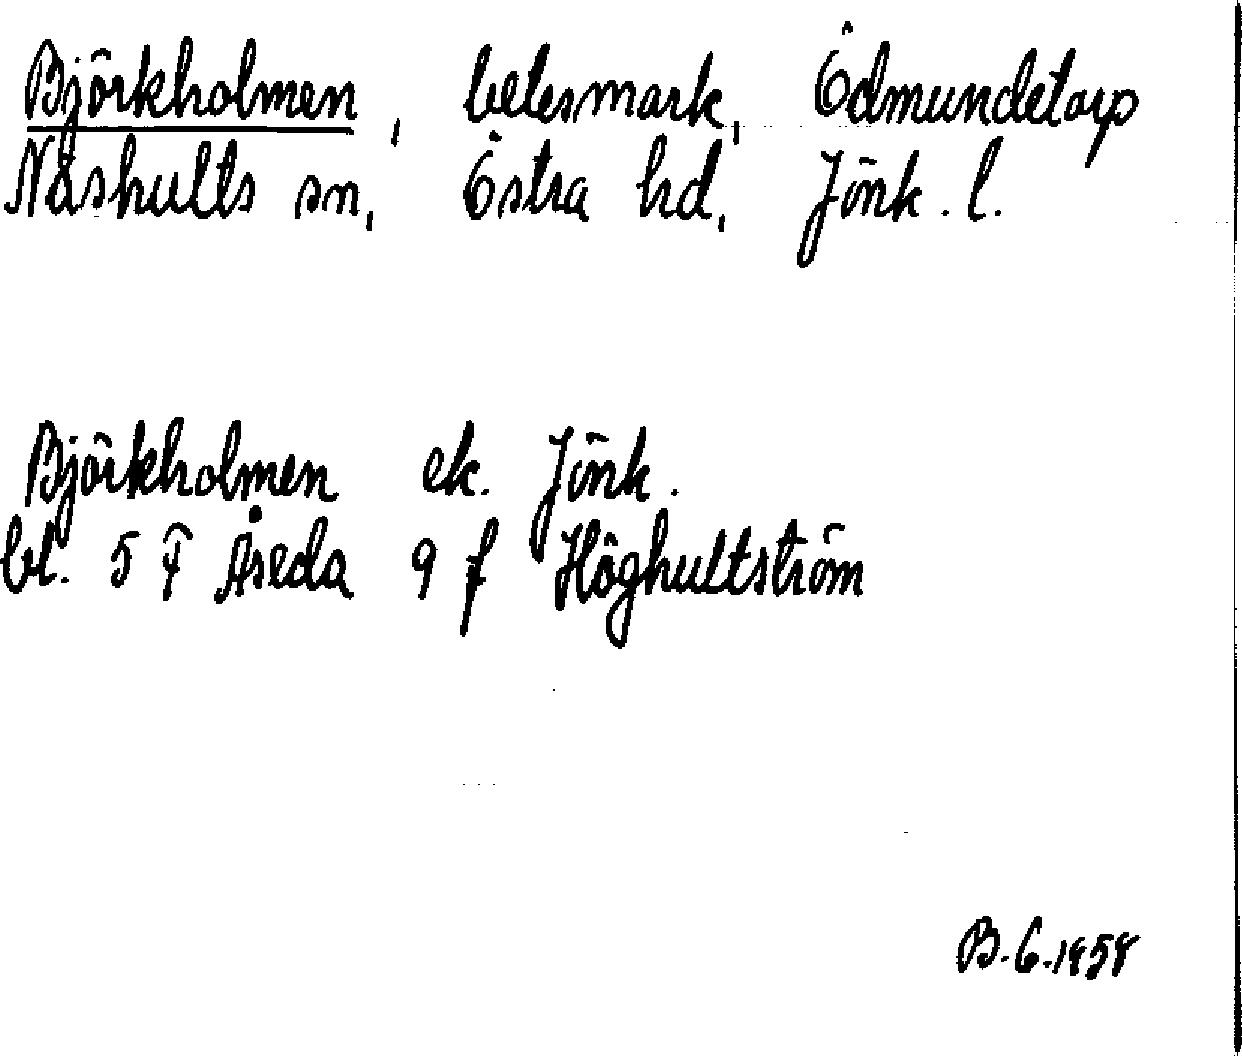 Björkholmen, betesmark, Ödmundetorp
Näshults sn, Östra hd, Jönk. l.
Björkholmen ek. Jönk.
bl. 5 F Åseda 9 f Höghultström
B.G.1958